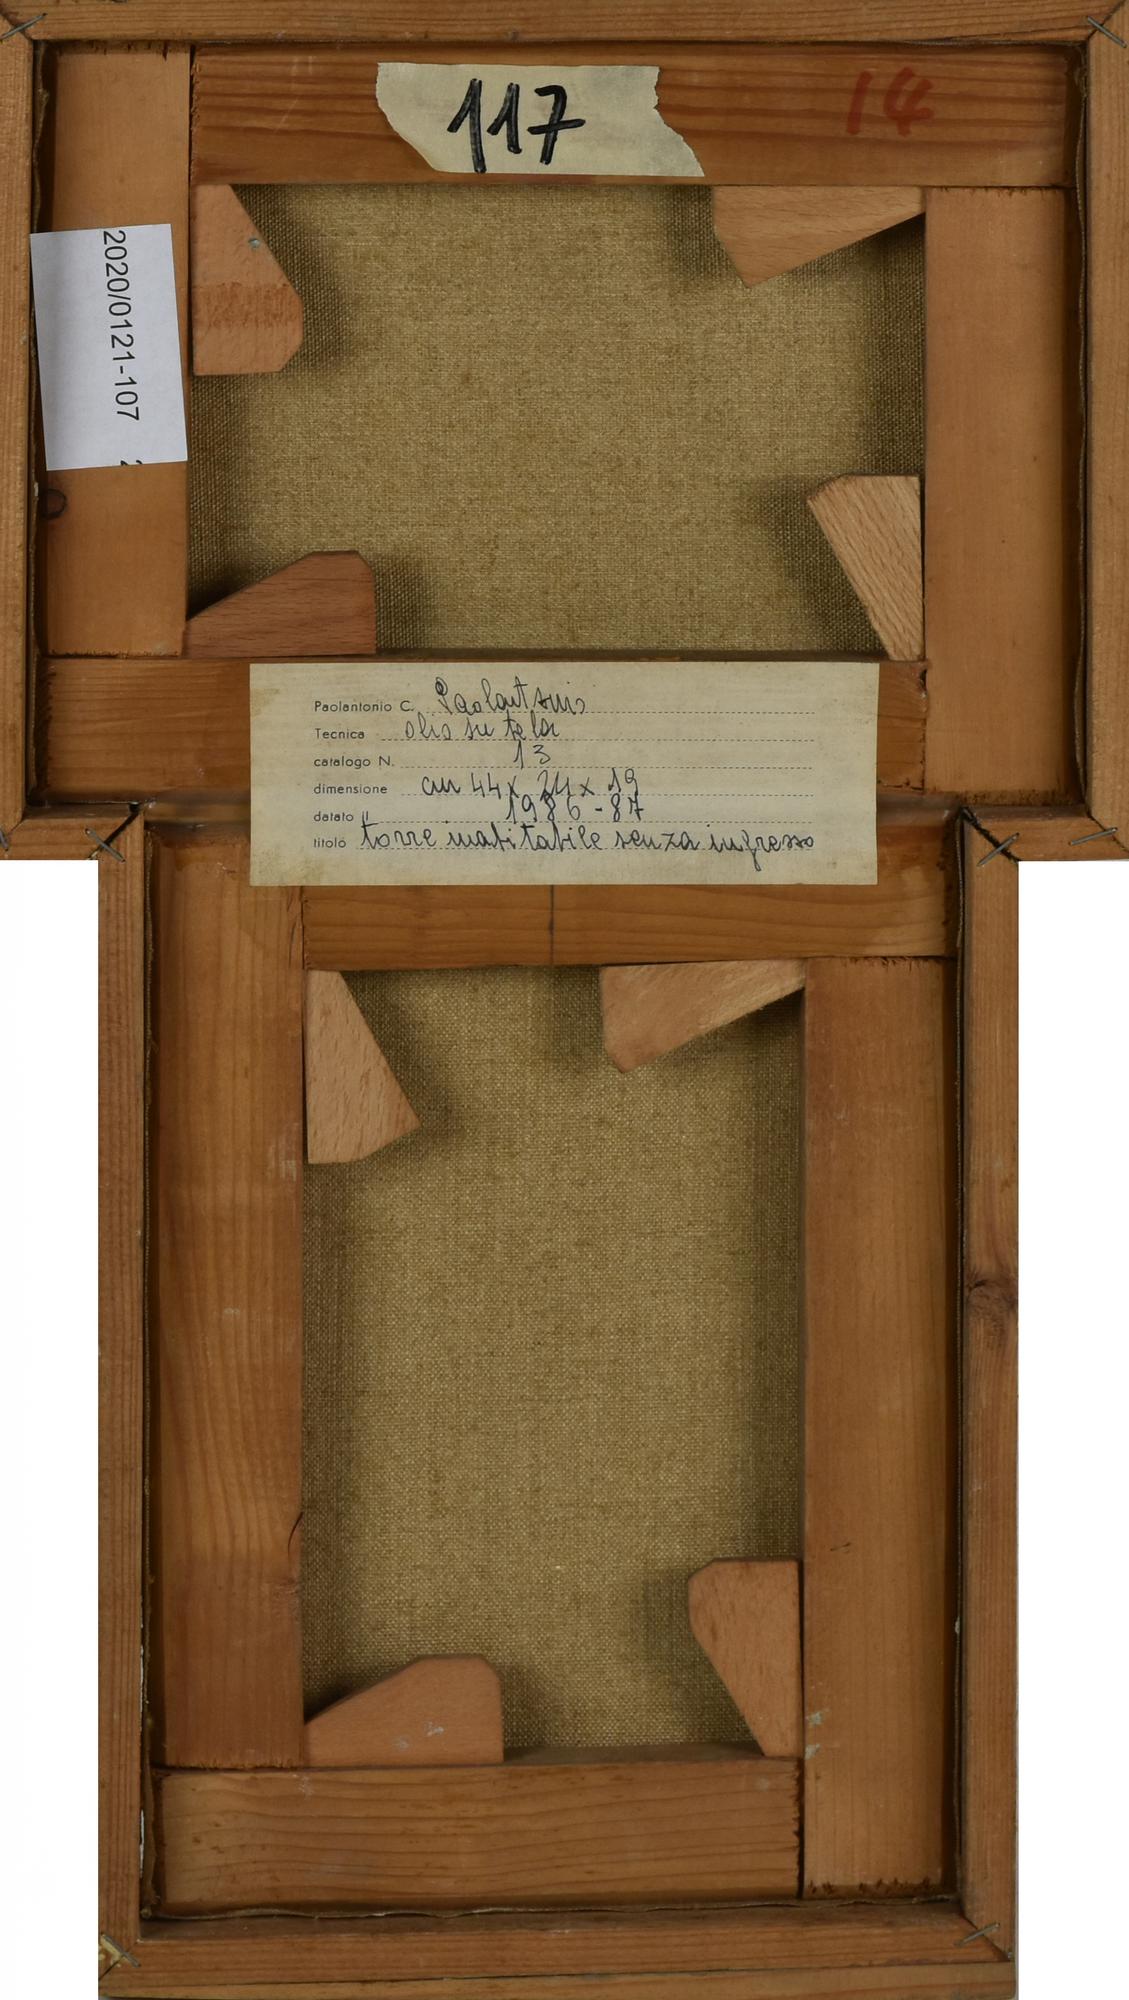 117
14
2020/0121-107
Paolantonio C. Paolantonio
Tecnica olio su tela
catalogo N. 13
dimensione cm 44 x 24 x 19
datato 1986-87
titolo "torre inabitabile senza ingresso